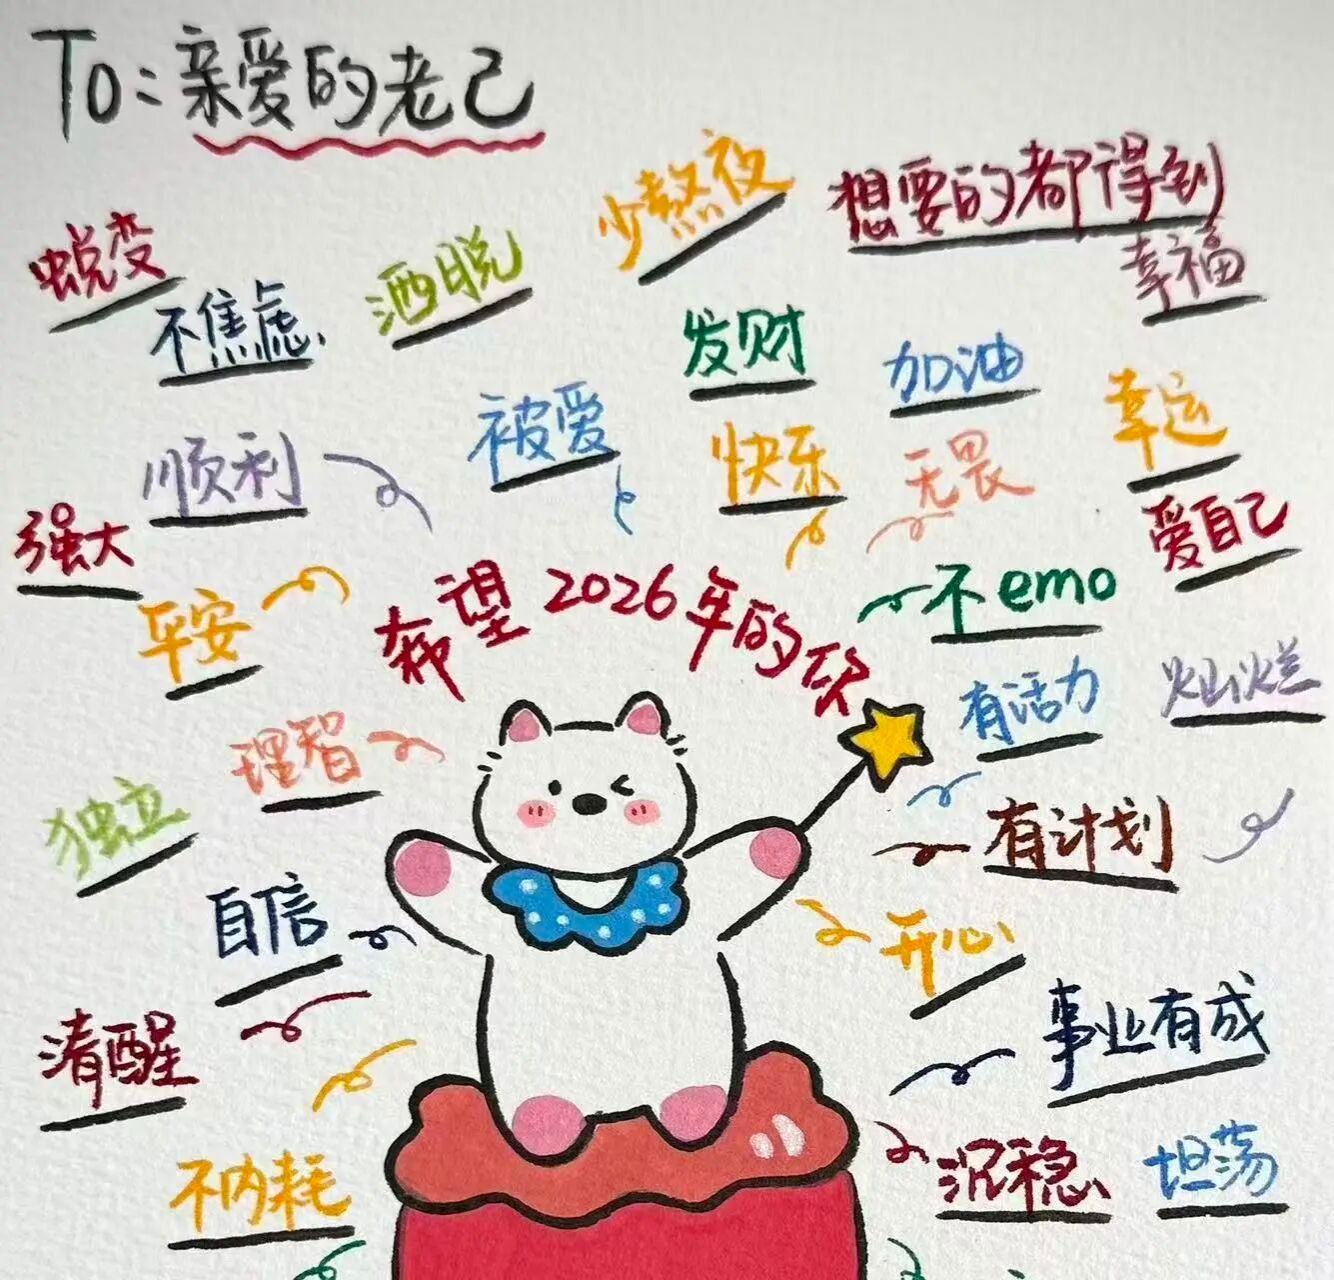 To:亲爱的老己
少熬夜
想要的都得到
蜕变
洒脱
幸福
不焦虑
发财
加油
被爱
幸运
顺利
快乐
无畏
强大
爱自己
平安
希望2026年的你
不emo
有活力
灿烂
理智
独立
有计划
自信
开心
清醒
事业有成
不内耗
沉稳
坦荡